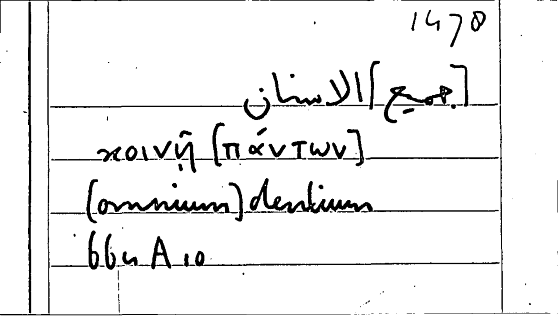 1478
[جميع] الاسنان
κοινῇ [πάντων]
[omnium] dentium
664 A 10